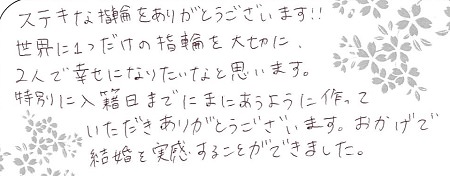 ステキな指輪をありがとうございます!!
世界に1つだけの指輪を大切に、
2人で幸せになりたいなと思います。
特別に入籍日までにまにあうように作って
いただきありがとうございます。おかげで
結婚を実感することができました。